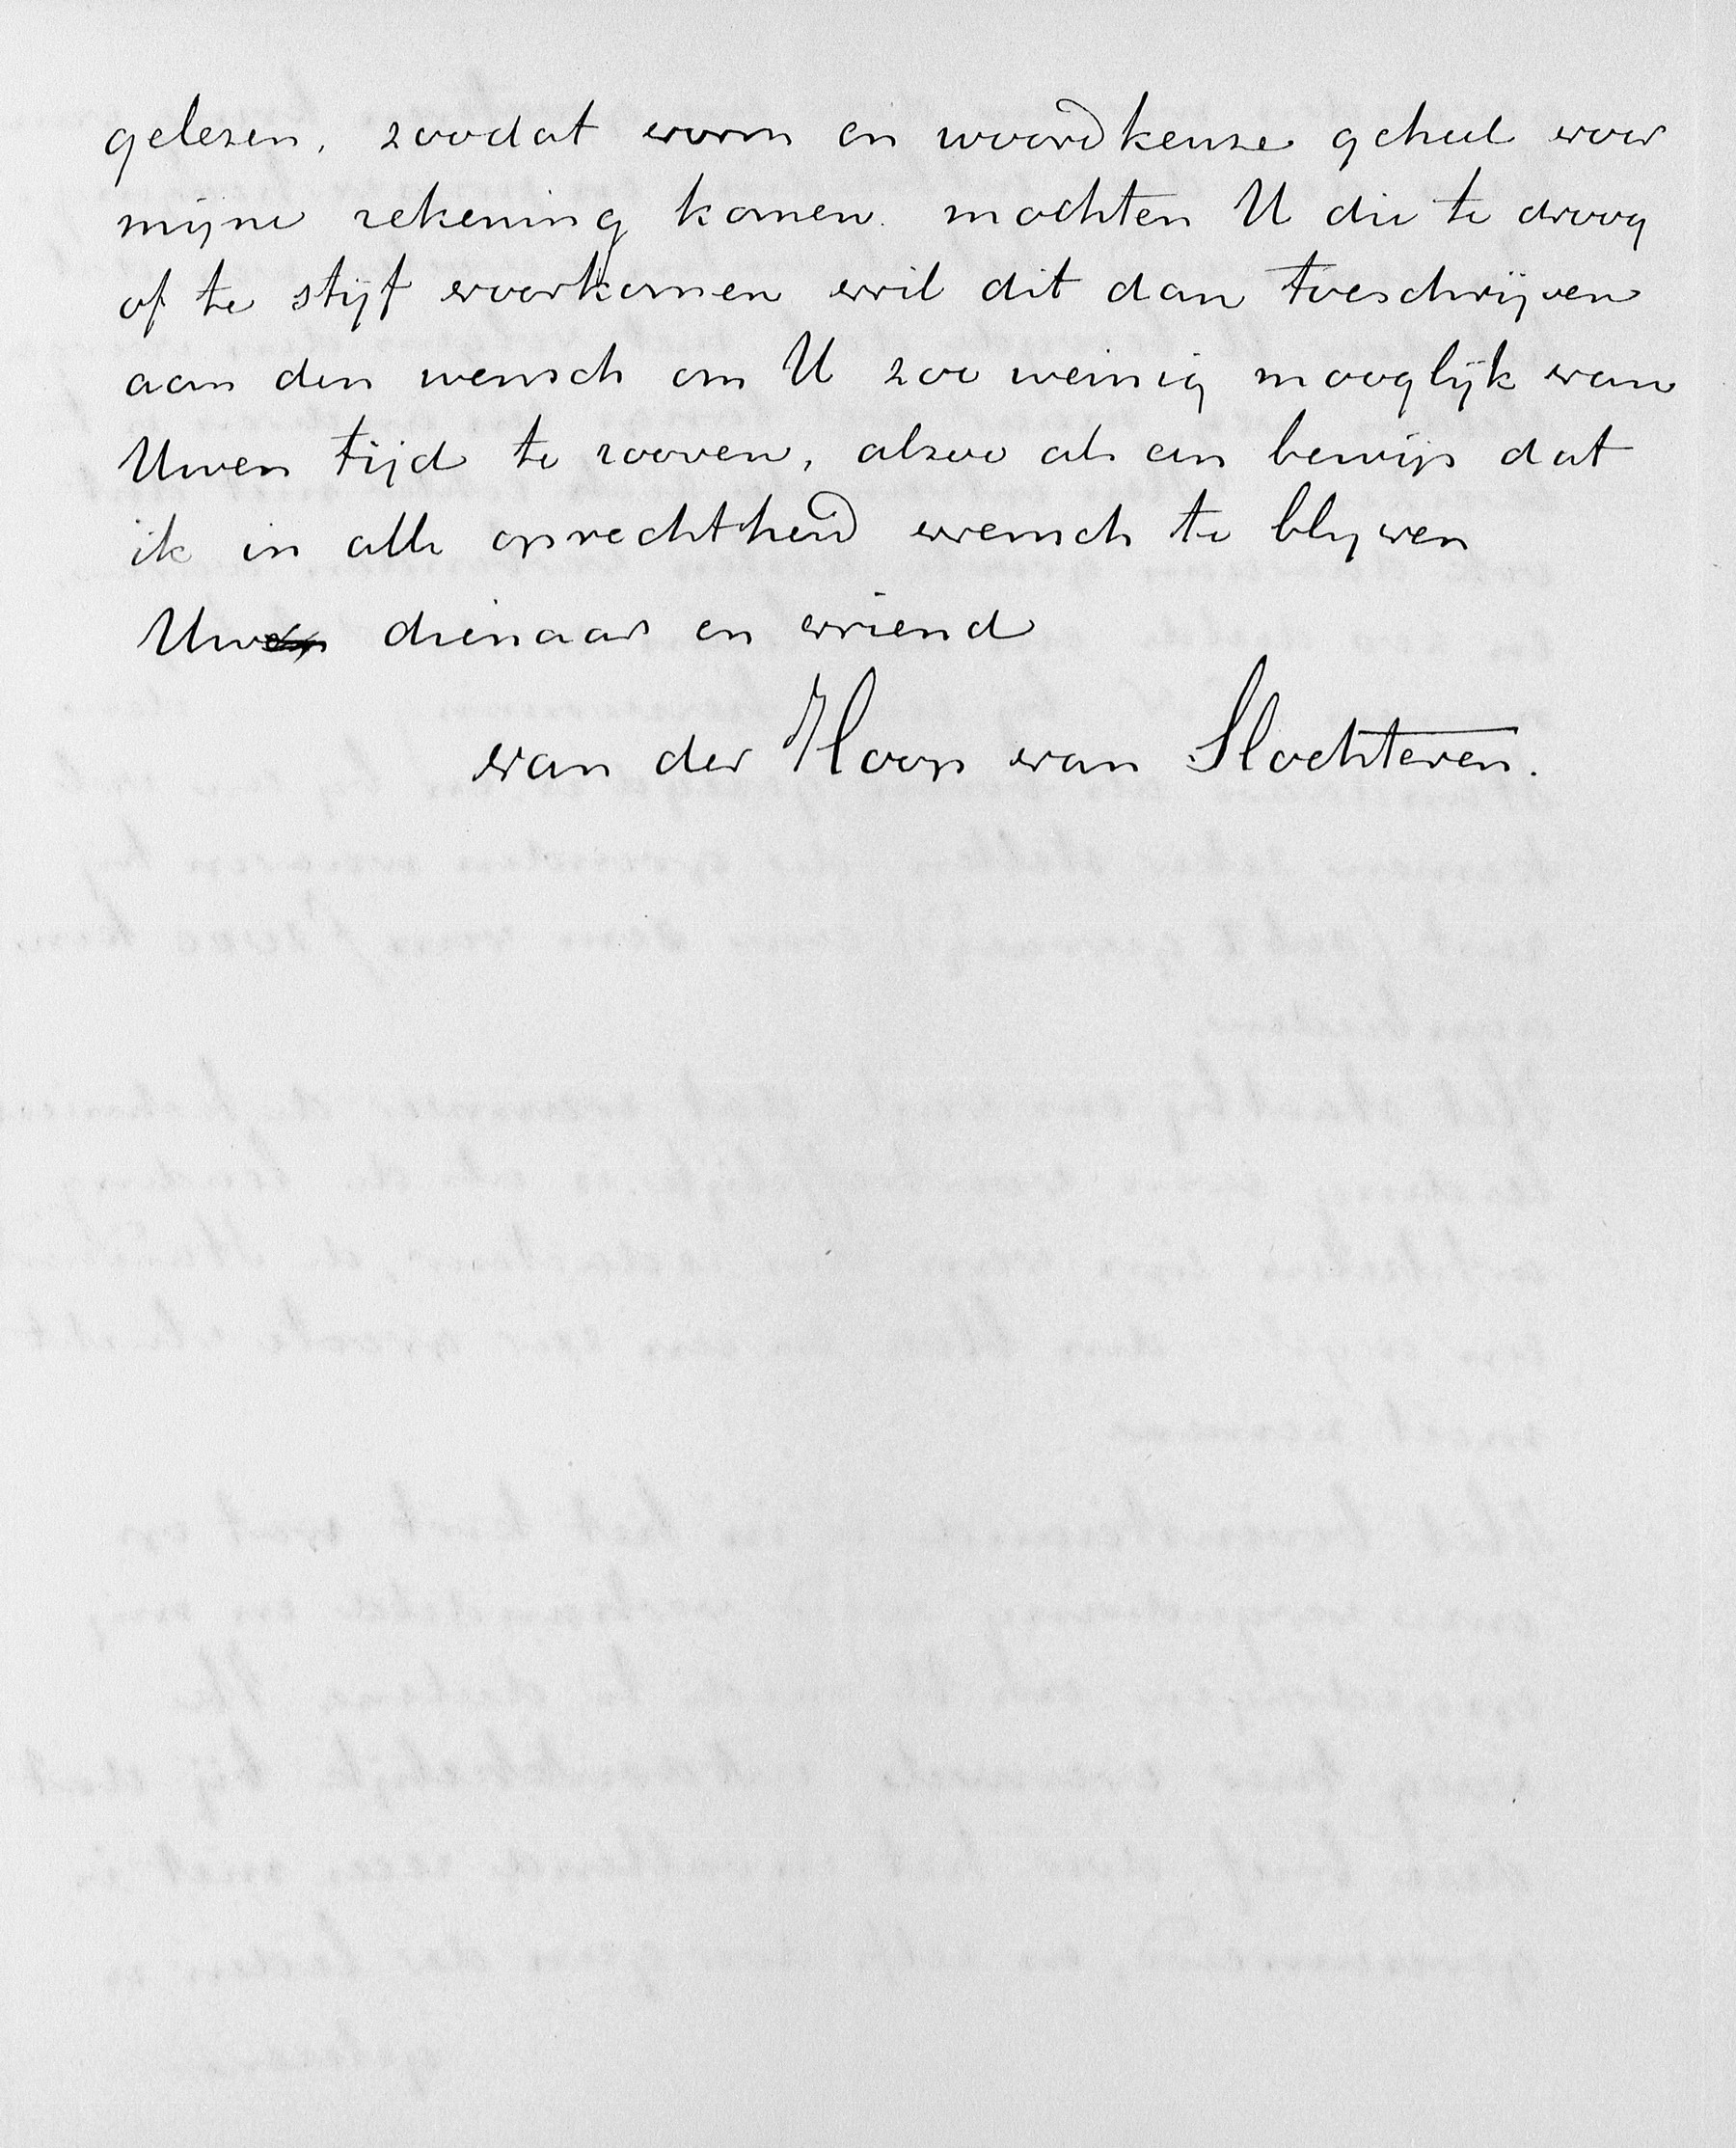 gelezen, zoodat vorm en woordkeuze geheel voor
mijne rekening komen. mochten U die te droog
of te stijf voorkomen wil dit dan toeschrijven
aan den wensch om U zoo weinig mooglijk van
Uwen tijd te rooven, alzoo als een bewijs dat
ik in alle oprechtheid wensch te blijven
Uwen dienaar en vriend
van der Hoop van Slochteren.